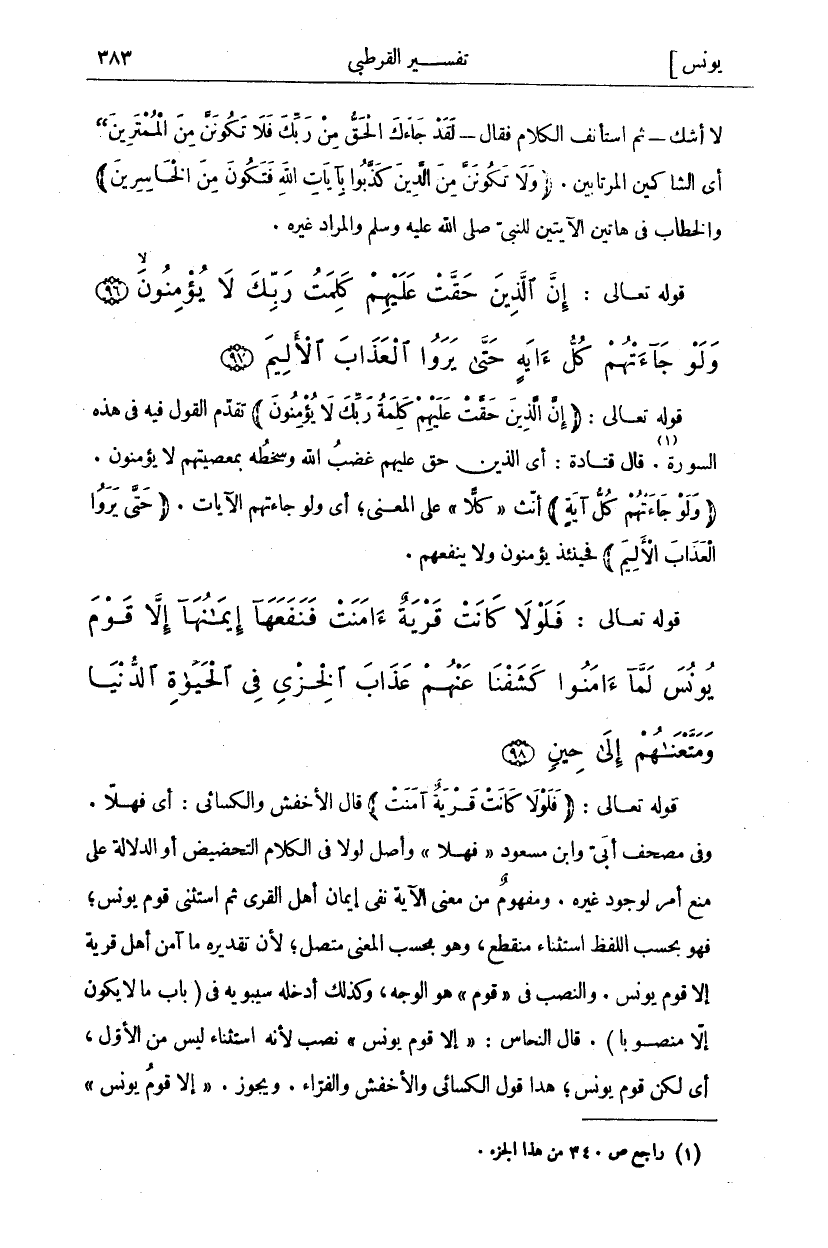 يونس ] تفسير القرطبى ٣٨٣
لا أشك – ثم استأنف الكلام فقال – لَقَدْ جَاءَكَ الْحَقُّ مِنْ رَبِّكَ فَلَا تَكُونَنَّ مِنَ الْمُمْتَرِينَ“
أى الشاكين المرتابين . ﴿ وَلَا تَكُونَنَّ مِنَ الَّذِينَ كَذَّبُوا بِآيَاتِ اللهِ فَتَكُونَ مِنَ الْخَاسِرِينَ ﴾
والخطاب فى هاتين الآيتين للنبىّ صلى الله عليه وسلم والمراد غيره .
قوله تعالى : إِنَّ ٱلَّذِينَ حَقَّتْ عَلَيْهِمْ كَلِمَتُ رَبِّكَ لَا يُؤْمِنُونَۙ ﴿٩٦﴾
وَلَوْ جَآءَتْهُمْ كُلُّ ءَايَةٍ حَتَّىٰ يَرَوُا ٱلْعَذَابَ ٱلْأَلِيمَ ﴿٩٧﴾
قوله تعالى : ﴿ إِنَّ الَّذِينَ حَقَّتْ عَلَيْهِمْ كَلِمَةُ رَبِّكَ لَا يُؤْمِنُونَ ﴾ تقدّم القول فيه فى هذه
السورة (١) . قال قتادة : أى الذين حق عليهم غضبُ الله وسخطُه بمعصيتهم لا يؤمنون .
﴿ وَلَوْ جَاءَتْهُمْ كُلُّ آيَةٍ ﴾ أنّث « كلًّا » على المعنى؛ أى ولو جاءتهم الآيات . ﴿ حَتَّى يَرَوُا
الْعَذَابَ الْأَلِيمَ ﴾ فحينئذ يؤمنون ولا ينفعهم .
قوله تعالى : فَلَوْلَا كَانَتْ قَرْيَةٌ ءَامَنَتْ فَنَفَعَهَآ إِيمَـٰنُهَآ إِلَّا قَوْمَ
يُونُسَ لَمَّآ ءَامَنُوا كَشَفْنَا عَنْهُمْ عَذَابَ ٱلْخِزْىِ فِى ٱلْحَيَوٰةِ ٱلدُّنْيَا
وَمَتَّعْنَـٰهُمْ إِلَىٰ حِينٍ ﴿٩٨﴾
قوله تعالى : ﴿ فَلَوْلَا كَانَتْ قَرْيَةٌ آمَنَتْ ﴾ قال الأخفش والكسائى : أى فهلّا .
وفى مصحف أبىّ وابن مسعود « فهلا » وأصل لولا فى الكلام التحضيض أو الدلالة على
منع أمر لوجود غيره . ومفهومٌ من معنى الآية نفى إيمان أهل القرى ثم استثنى قوم يونس؛
فهو بحسب اللفظ استثناء منقطع، وهو بحسب المعنى متصل؛ لأن تقديره ما آمن أهل قرية
إلا قوم يونس . والنصب فى «قوم» هو الوجه، وكذلك أدخله سيبويه فى ( باب ما لا يكون
إلّا منصوبا ) . قال النحاس : « إلا قوم يونس » نصب لأنه استثناء ليس من الأوّل ،
أى لكن قوم يونس؛ هذا قول الكسائى والأخفش والفرّاء . ويجوز . « إلا قومُ يونس »
(١) راجع ص ٣٤٠ من هذا الجزء .